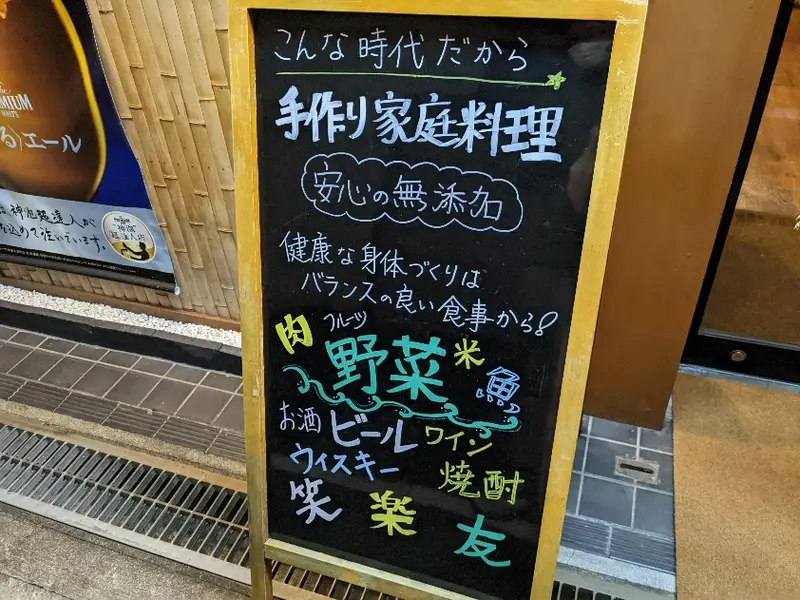 こんな時代だから
手作り家庭料理
安心の無添加
健康な身体づくりは
バランスの良い食事から!
肉 フルーツ 野菜 米 魚
お酒 ビール ワイン
ウィスキー 焼酎
笑 楽 友
PREMIUM
MALT'S
る〉エール
神泡超達人が
込めて注いでいます。
神泡
超達人店